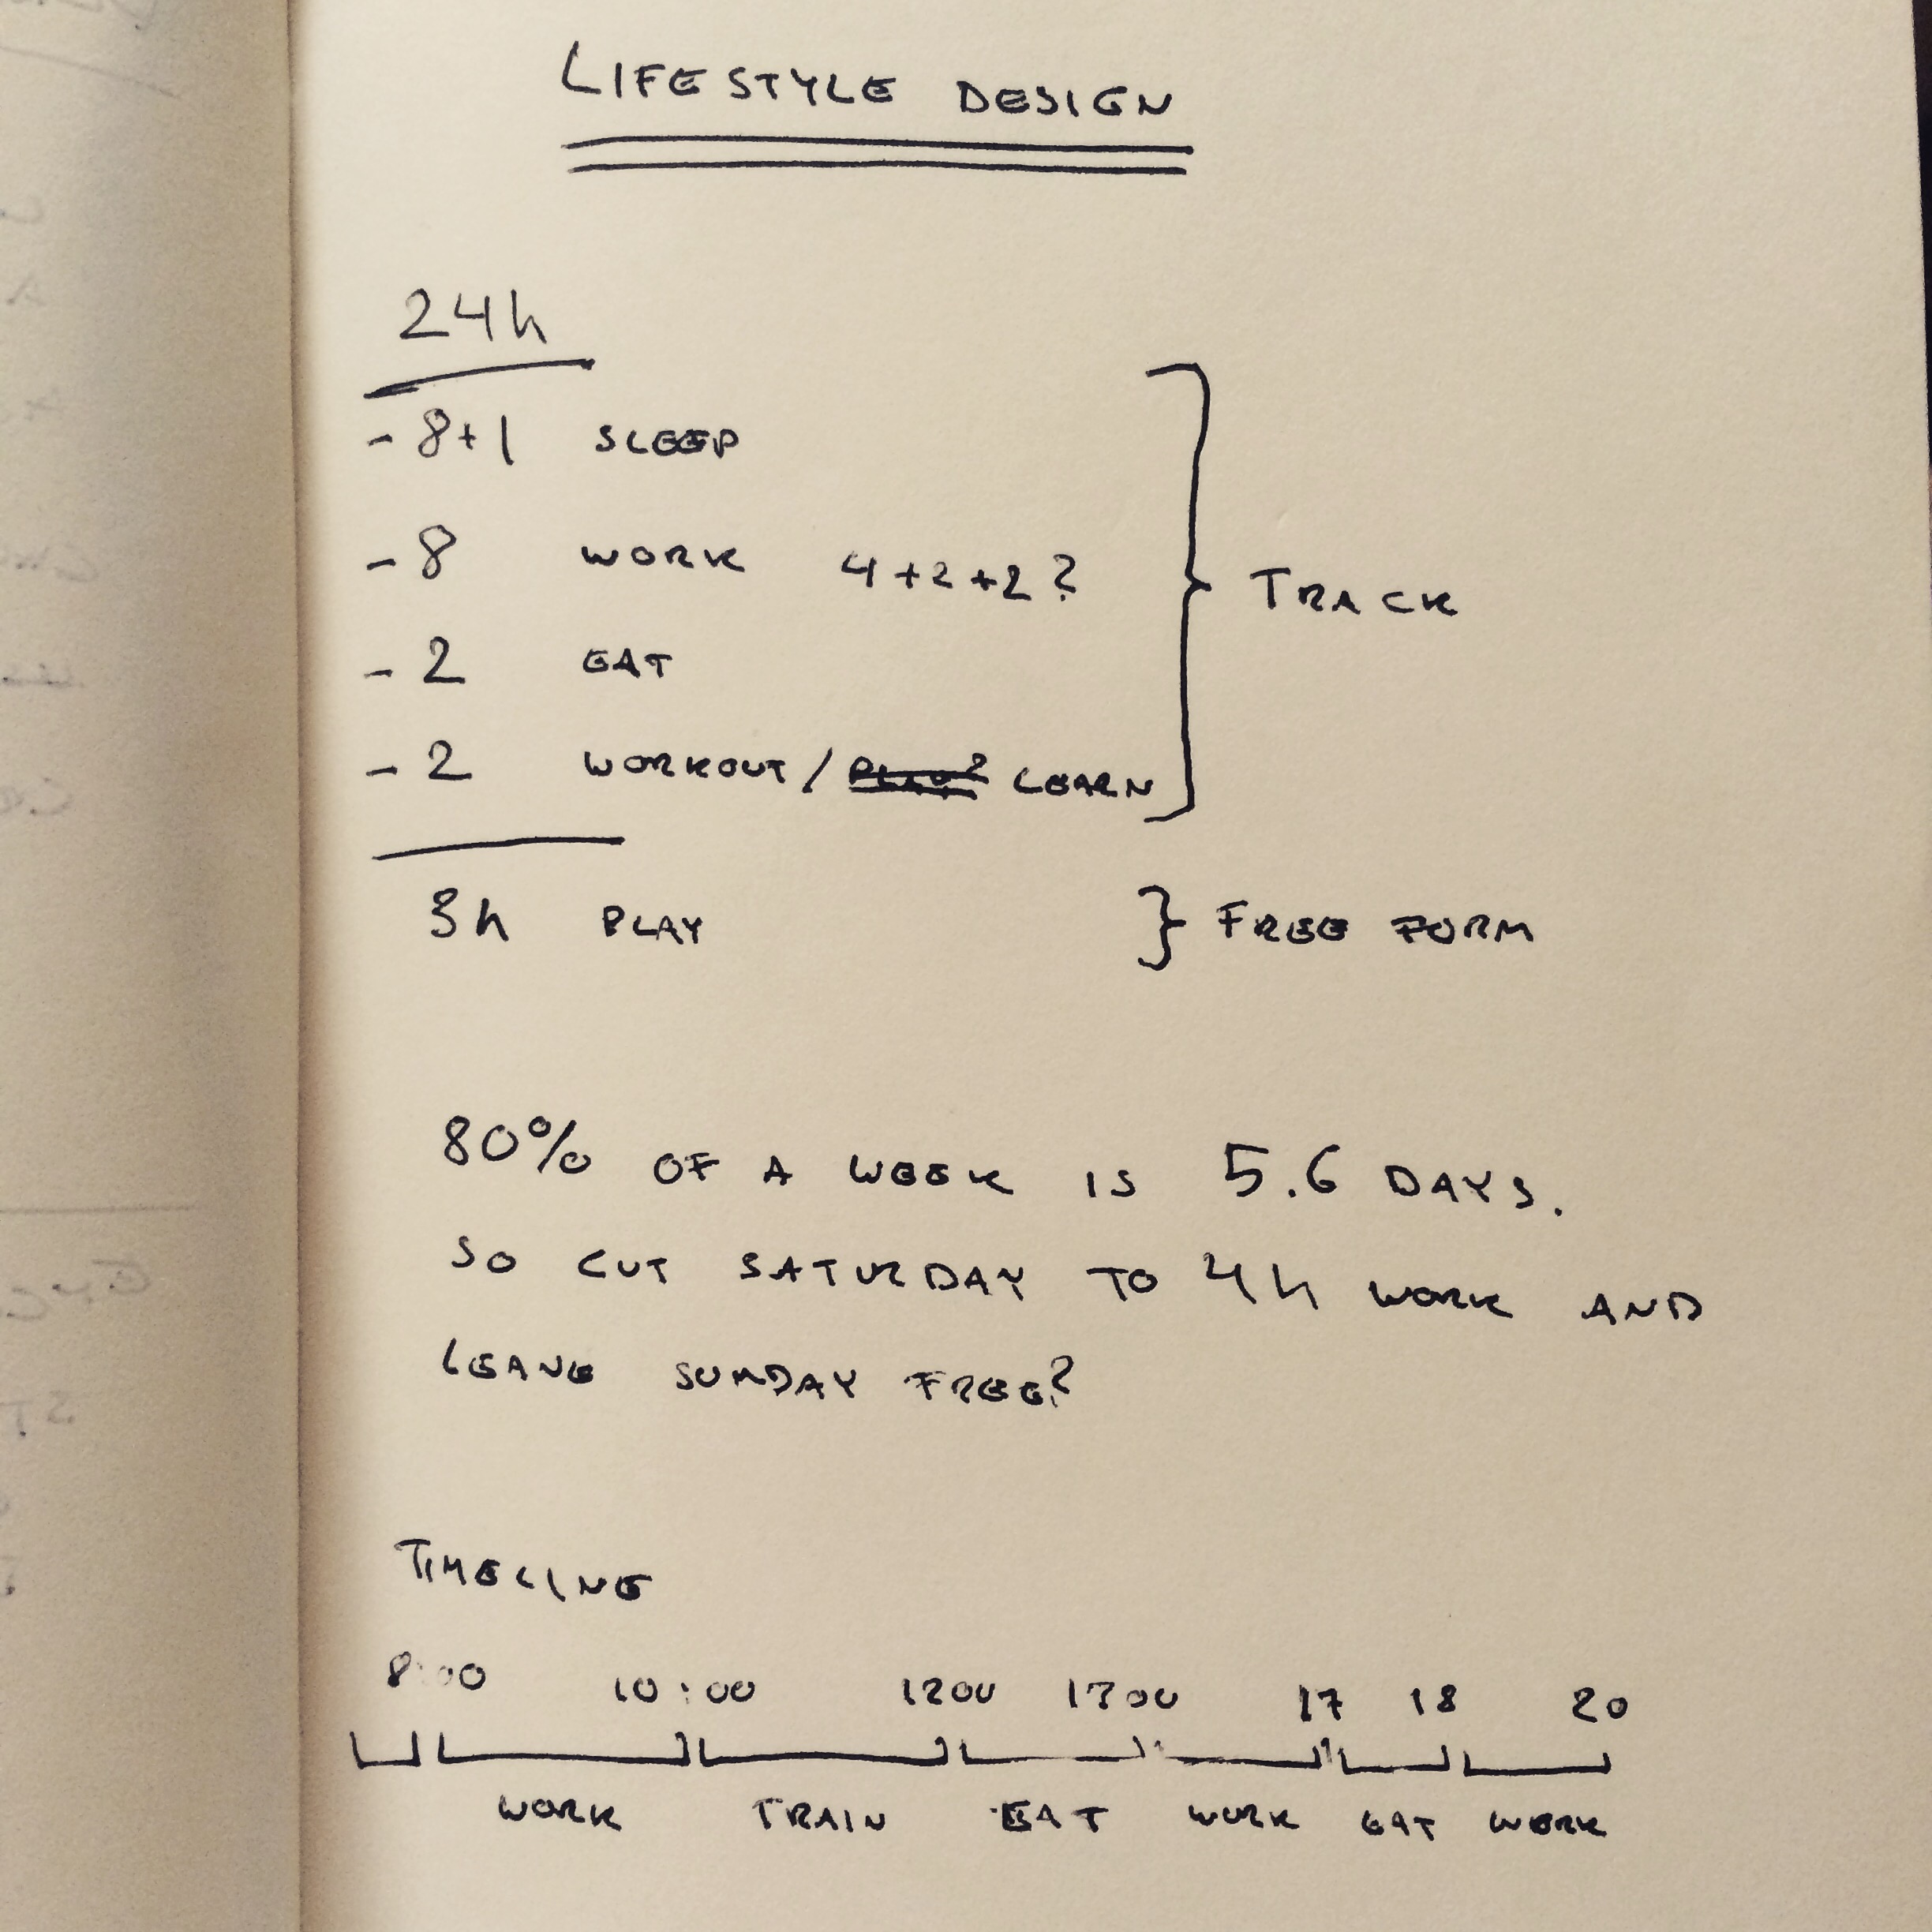 LIFESTYLE DESIGN
24h
- 8+1 SLEEP
- 8 WORK 4+2+2?
- 2 EAT
- 2 WORKOUT / LEARN
TRACK
3h PLAY } FREE FORM
80% OF A WEEK IS 5.6 DAYS.
SO CUT SATURDAY TO 4h WORK AND
LEAVE SUNDAY FREE?
TIMELINE
8:00 10:00 1200 1300 17 18 20
WORK TRAIN EAT WORK EAT WORK